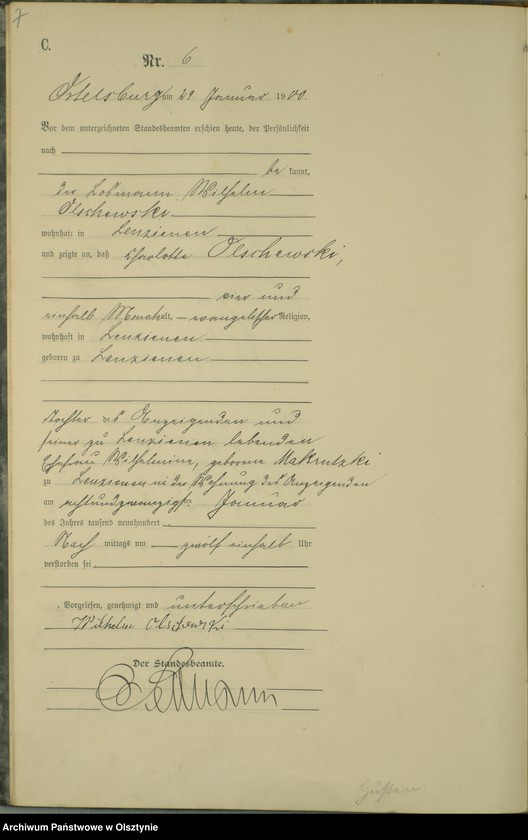 7
C.
Nr. 6
Ortelsburg am 29 Januar 1900.
Vor dem unterzeichneten Standesbeamten erschien heute, der Persönlichkeit
nach
be kannt,
der Losmann Wilhelm
Olschewski
wohnhaft in Lenzienen
und zeigte an, daß Charlotte Olschewski,
vier und
einhalb Monat alt, evangelischer Religion,
wohnhaft in Lenzienen
geboren zu Lenzienen
Tochter des Anzeigenden und
seiner zu Lenzienen lebenden
Ehefrau Wilhelmine, geborene Makrutzki
zu Lenzienen in der Wohnung des Anzeigenden
am achtundzwanzigsten Januar
des Jahres tausend neunhundert
Nach mittags um zwölf einhalb Uhr
verstorben sei
Vorgelesen, genehmigt und unterschrieben
Wilhelm Olschewski
Der Standesbeamte.
Husten
Archiwum Państwowe w Olsztynie